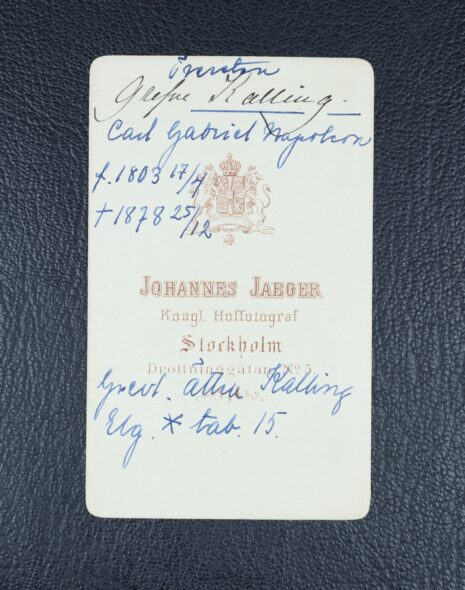 Översten
Grefve Kalling.
Carl Gabriel Napoleon
f. 1803 17/7
† 1878 25/12
JOHANNES JAEGER
Kongl. Hoffotograf
Stockholm
Drottninggatan No 5.
Grevl. ätten Kalling
Elg. * tab. 15.